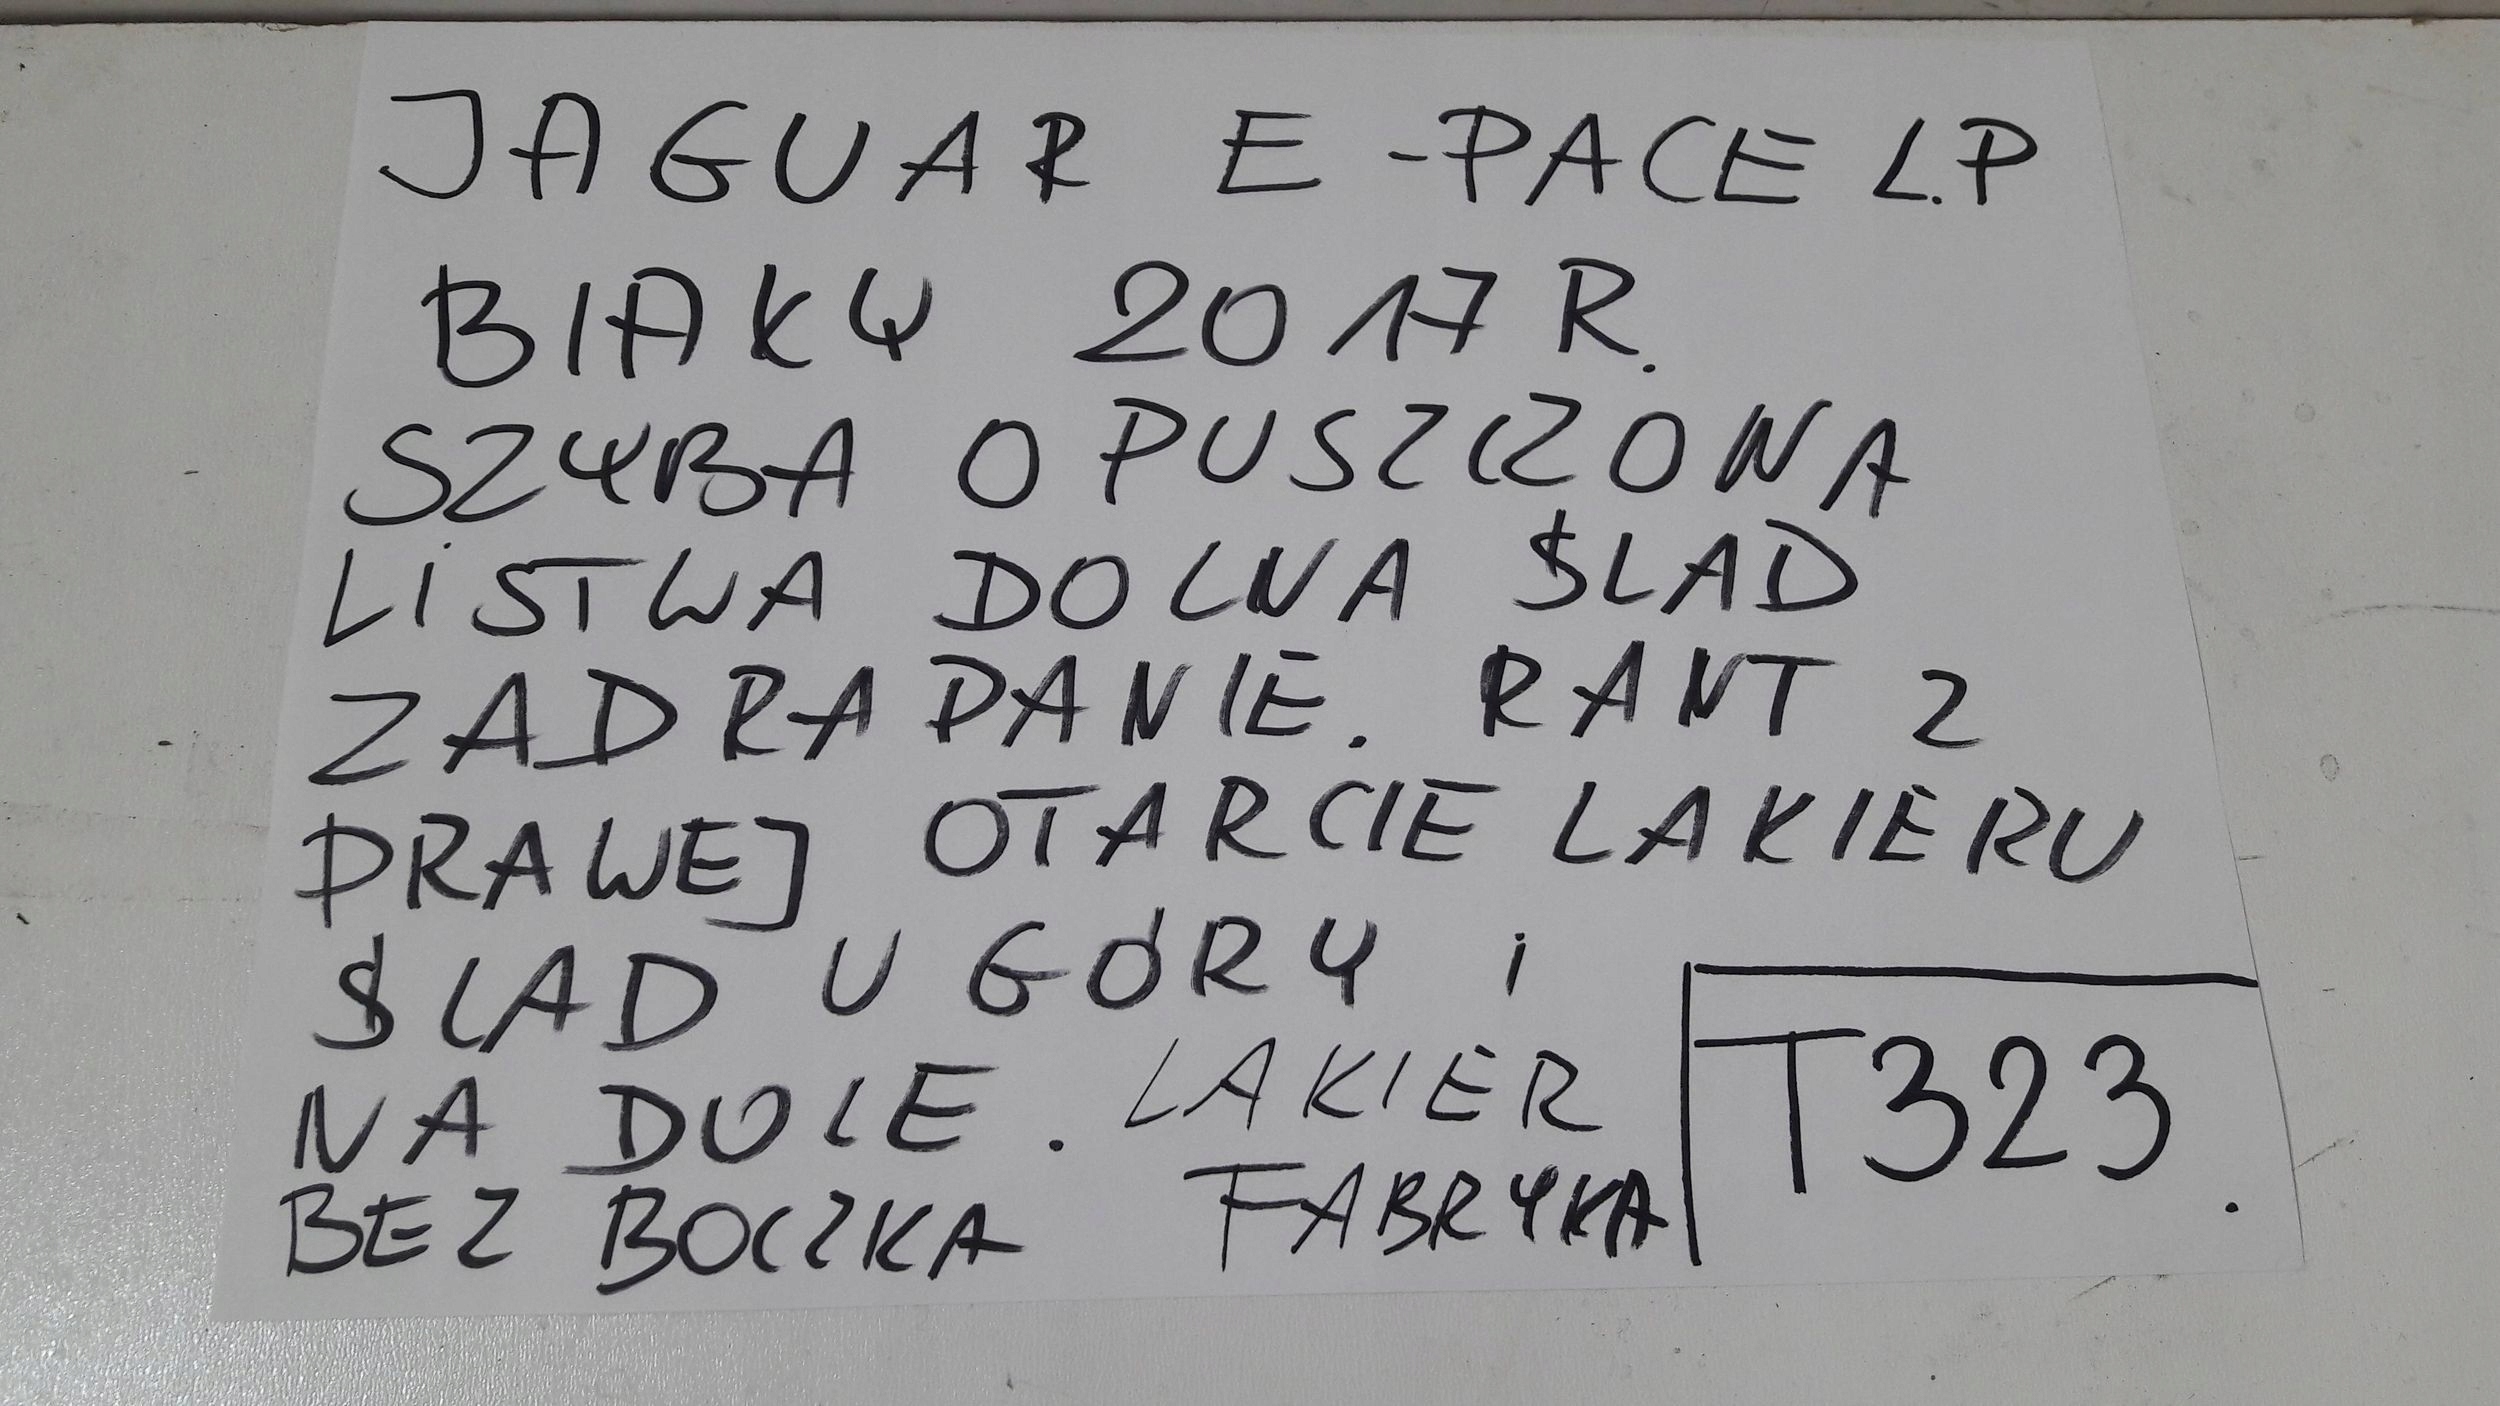 JAGUAR E-PACE L.P
BIAŁY 2017 R.
SZYBA OPUSZCZONA
LISTWA DOLNA ŚLAD
ZADRAPANIE. RANT Z
PRAWEJ OTARCIE LAKIERU
ŚLAD U GÓRY i
NA DOLE. LAKIER
BEZ BOCZKA FABRYKA
T323.